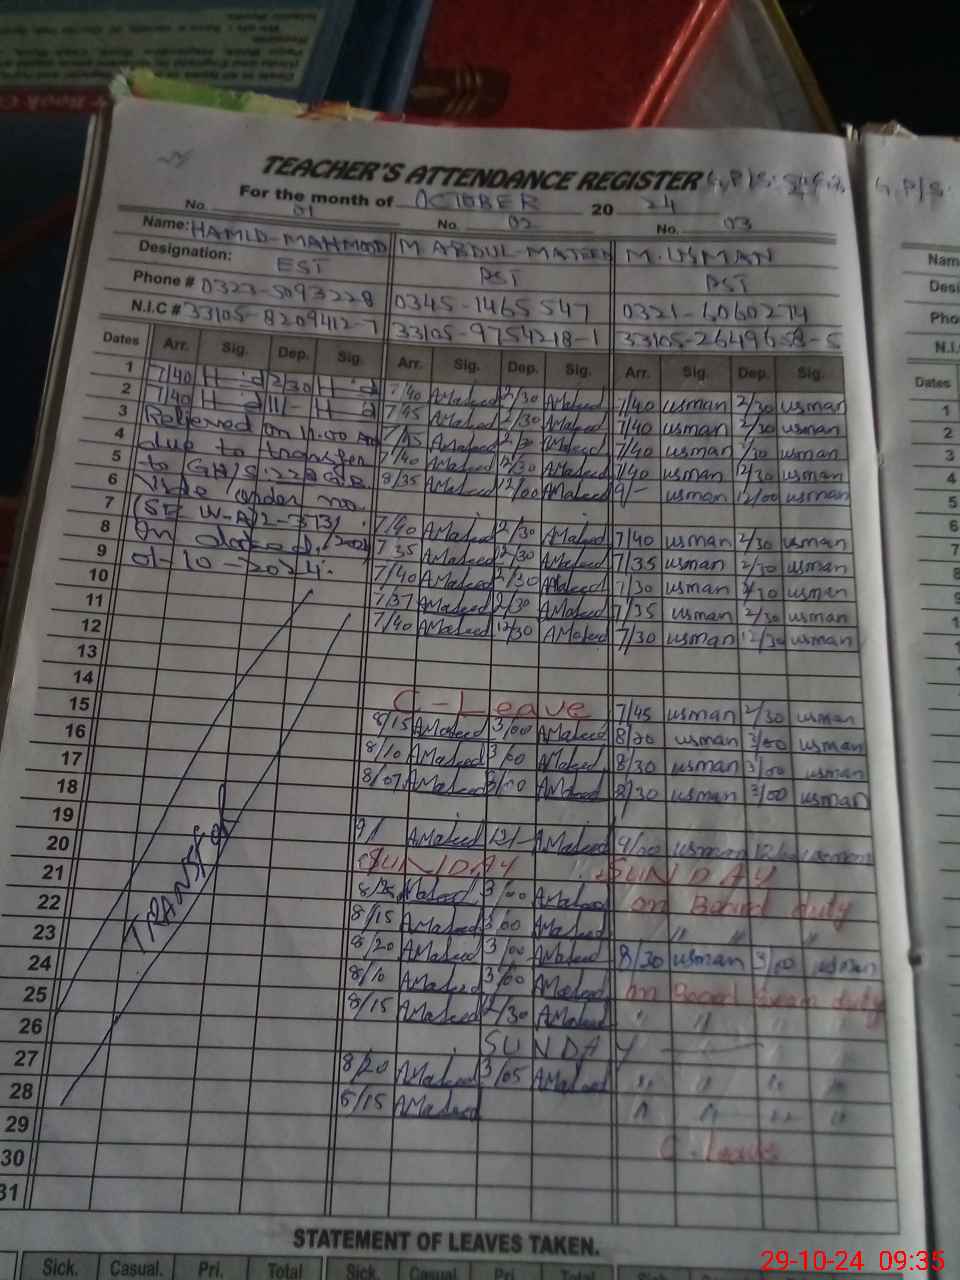 TEACHER'S ATTENDANCE REGISTER
For the month of OCTOBER 2024
No. 01 No. 02 No. 03
Name: HAMID-MAHMOOD M. ABDUL-MATEEN M. USMAN
Designation: EST PST PST
Phone # 0323-5093228 0345-1465547 0321-6060274
N.I.C # 33105-8209412-7 33105-9754218-1 33105-2649658-5
Dates Arr. Sig. Dep. Sig. Arr. Sig. Dep. Sig. Arr. Sig. Dep. Sig.
1 7/40 H-d 2/30 H-d 7/40 AMateed 2/30 AMateed 7/40 usman 2/30 usman
2 7/40 H-d 11/- H-d 7/45 AMateed 2/30 AMateed 7/40 usman 2/30 usman
3 Relieved on 11.00 Am AMateed 2/30 AMateed 7/40 usman 2/30 usman
4 due to transfer 7/40 AMateed 12/30 AMateed 7/40 usman 12/30 usman
5 to 8/35 AMateed 12/00 AMateed 9/- usman 12/00 usman
6 vide order no
7 7/40 AMateed 2/30 AMateed 7/40 usman 2/30 usman
8 On dated 7/35 AMateed 12/30 AMateed 7/35 usman 2/30 usman
9 01-10-2024. 7/40 AMateed 2/30 AMateed 7/30 usman 2/30 usman
10 7/37 AMateed 2/30 AMateed 7/35 usman 2/30 usman
11 7/40 AMateed 12/30 AMateed 7/30 usman 12/30 usman
12
13
14 C-Leave 7/45 usman 2/30 usman
15 8/15 AMateed 3/00 AMateed 8/20 usman 3/00 usman
16 8/10 AMateed 3/00 AMateed 8/30 usman 3/00 usman
17 8/07 AMateed 3/00 AMateed 8/30 usman 3/00 usman
18
19 9/ AMateed 12/- AMateed 9/00 usman 12/00 usman
20 SUNDAY SUNDAY
21 AMateed 3/00 AMateed on Board duty
22 8/15 AMateed 3/00 AMateed " " "
23 8/20 AMateed 3/00 AMateed 8/30 usman 3/00 usman
24 8/10 AMateed 3/00 AMateed on Board Exam duty
25 8/15 AMateed 12/30 AMateed " " " "
26 SUNDAY
27 8/20 AMateed 3/05 AMateed " " " "
28 AMateed " " " "
29 C-leave
30
31
TRANSFER
STATEMENT OF LEAVES TAKEN.
Sick. Casual. Pri. Total Sick. Casual Pri. Total Sick.
Dates
1
2
3
4
5
6
7
8
29-10-24 09:35